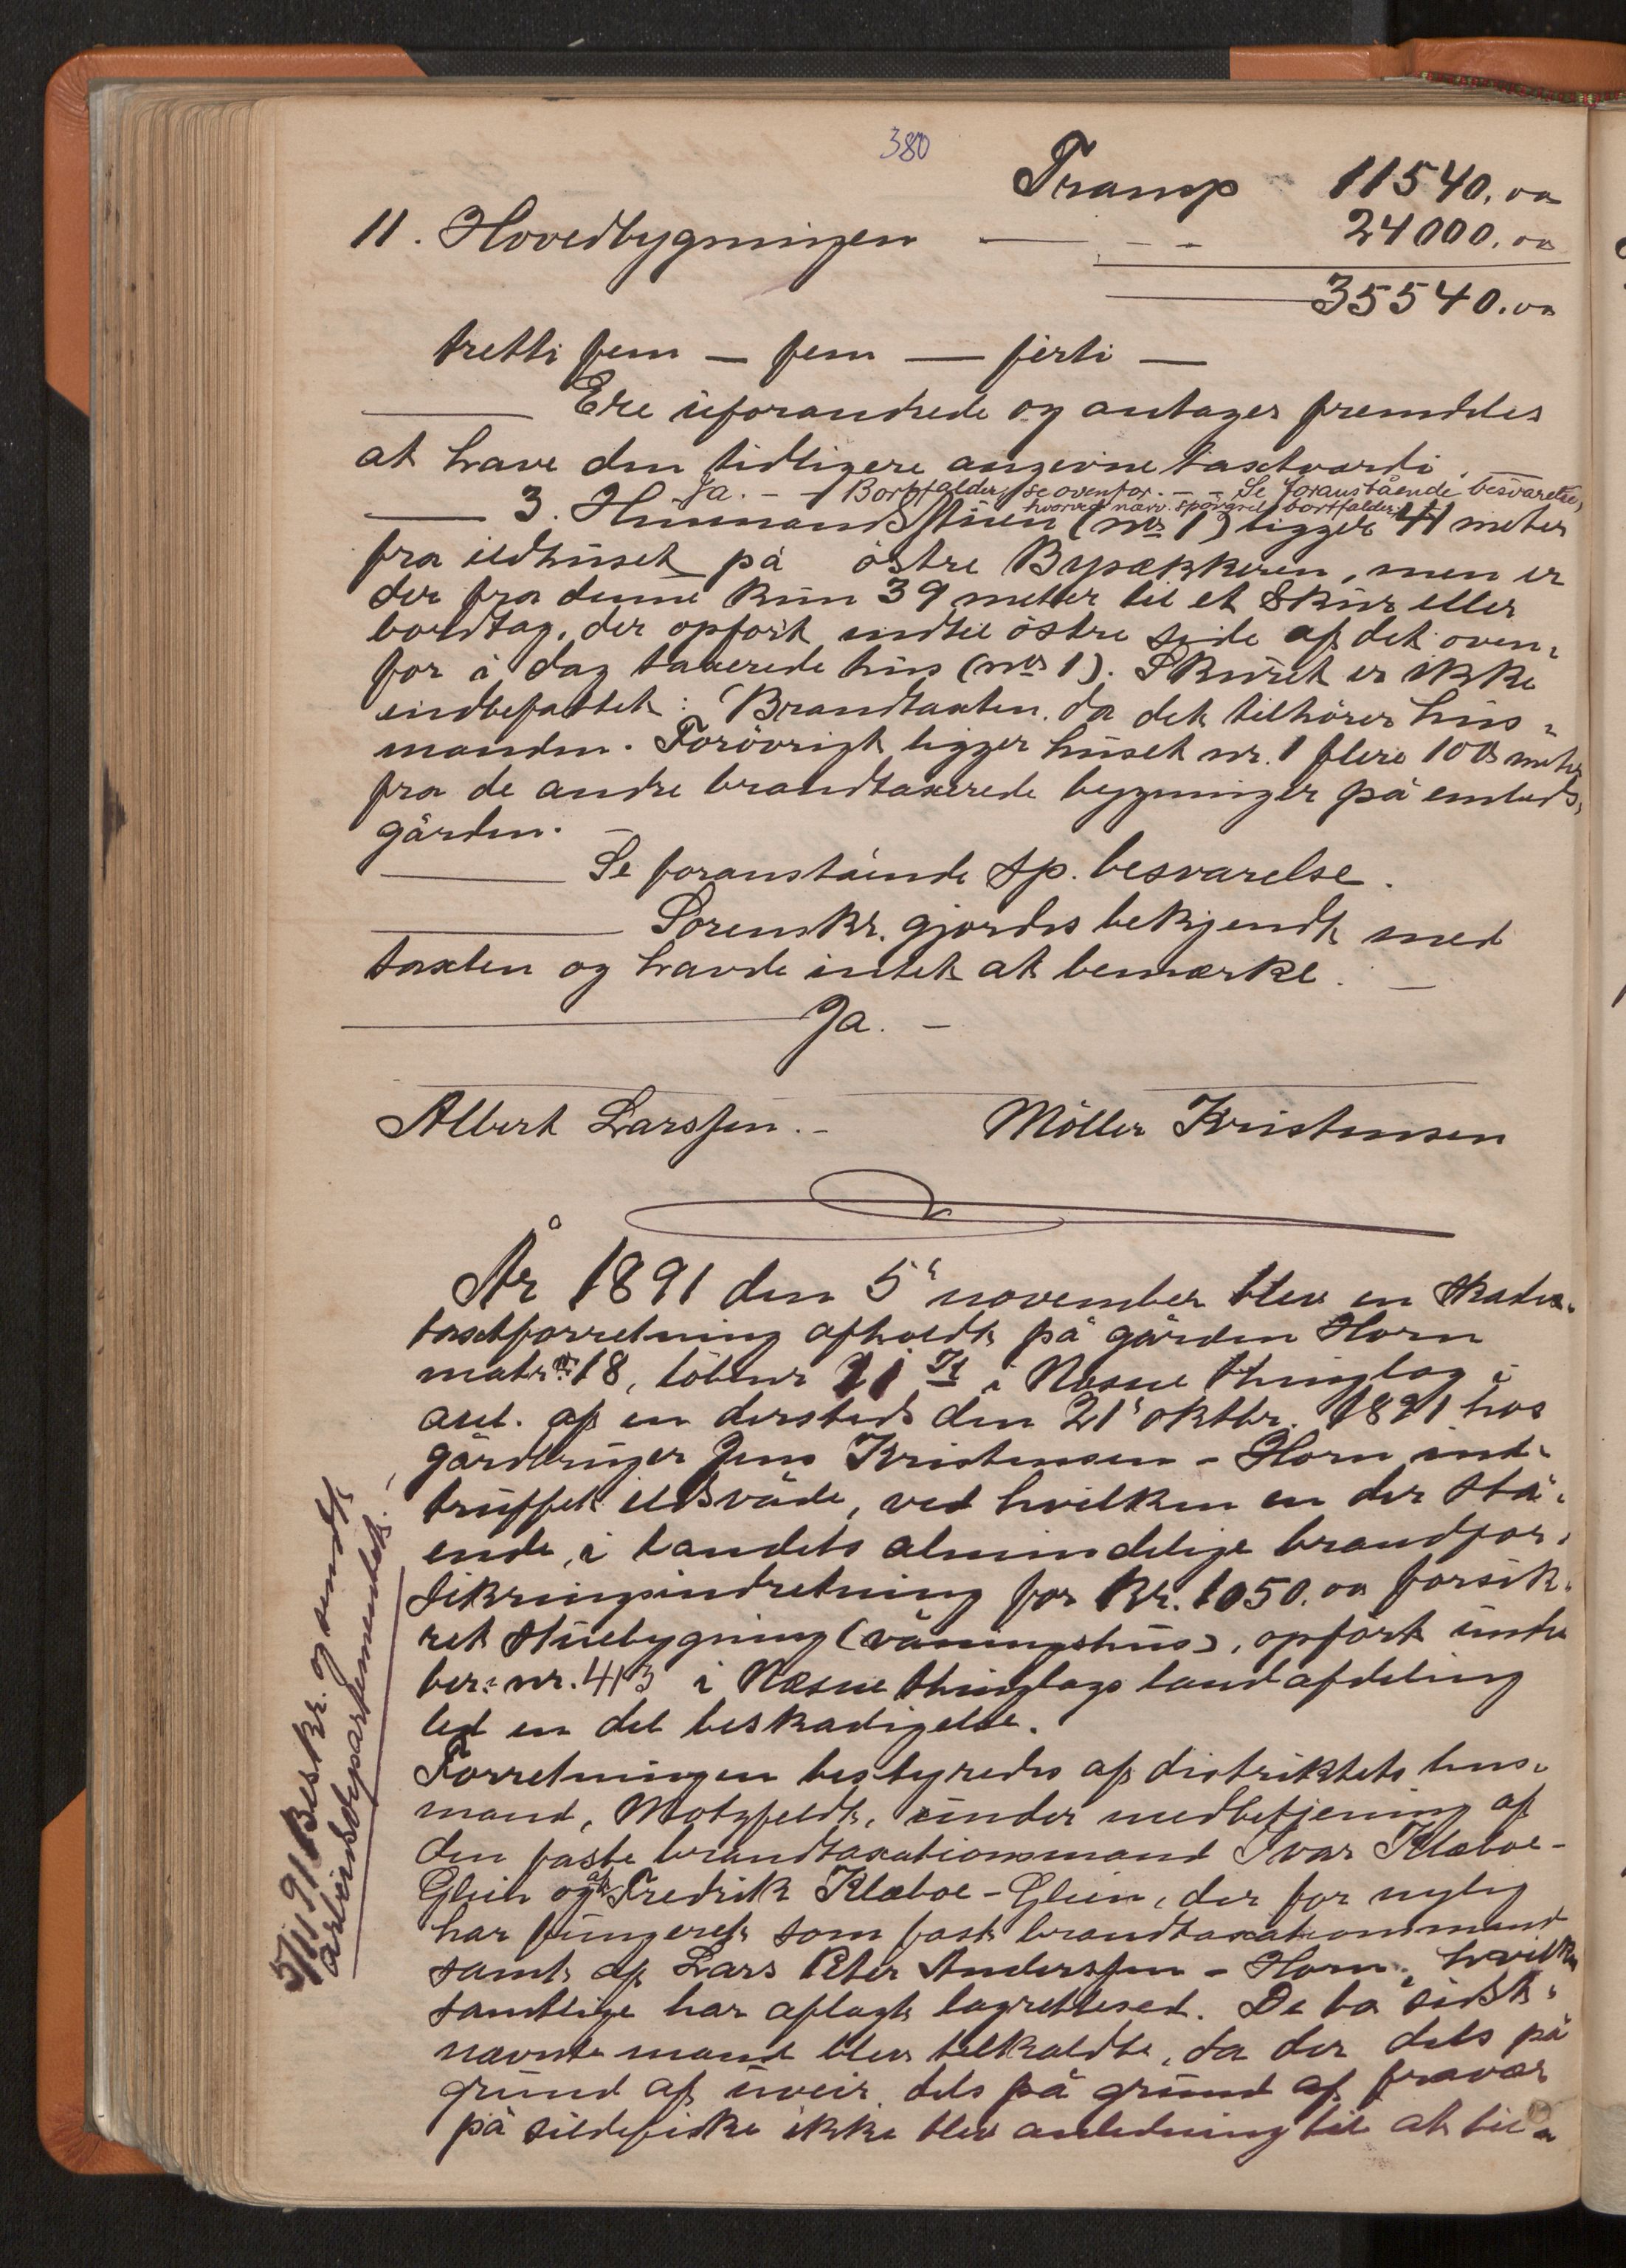 380
Transp 11540.00
11. Hovedbygningen — - - 24000.00
35540.00
tretti fem — fem — førti —
Ere uforandrede og antages fremdeles
at have den tidligere angivne taxtværdi.
Ja. - - Bortfalder, se ovenfor. - - Se foranstående besvarelse,
hvorved nærv. spörgsel bortfalder.
3. Husmandsstuen (nr 1) ligger 41 meter
fra ildhuset på östre Bypækkeren, men er
der fra denne kun 39 meter til et Skur eller
bordtag, der opfört indtil östre side af det oven-
for i dag taxerede hus (nr 1). Skuret er ikke
indbefattet i Brandtaxten, da det tilhörer hus-
manden. Forövrigt ligger huset nr. 1 flere 100 meter
fra de andre brandtaxerede bygninger på embeds-
gården.
Se foranstående sp. besvarelse.
Sorenskr. gjordes bekjendt med
taxten og havde intet at bemærke. —
Ja. —
Albert Larssen. - Möller Kristensen
År 1891 den 5' november blev en skades-
taxtforretning afholdt på gården Horn
matr. nr 18, löbenr 21 i Næsne thinglag i
anl. af en dersteds den 21' oktbr. 1891 hos
gårdbruger Jens Kristensen - Horn ind-
truffet ildsvåde, ved hvilken en der stå-
ende, i landets almindelige brandfor-
sikringsindretning for Kr. 1050.00 forsik-
ret stuebygning (våningshus), opfört under
ber: nr. 413 i Næsne thinglags landafdeling
led en del beskadigelse.
Forretningen bestyredes af distriktets lens-
mand, Motzfeldt, under medbetjening af
den faste brandtaxationsmand Ivar Klæboe-
Glein og af Fredrik Klæboe-Glein, der for nylig
har fungeret som fast brandtaxationsmand
samt af Lars Peter Anderssen - Horn, hvilke
samtlige har aflagt lagrettesed. De to sidst-
nævnte mænd blev tilkaldte, da der dels på
grund af uveir dels på grund af fravær
på sildefiske ikke blev anledning til at til-
5/11 91 Beskr. og sendt
arbeidsdepartementet.